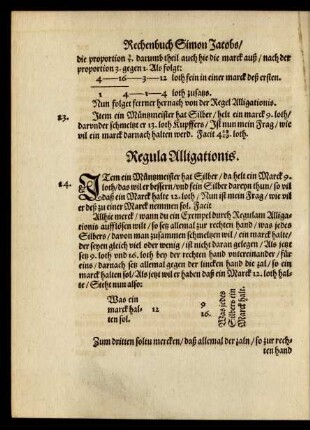 Rechenbuch Simon Jacobs/
die proportion ¾. darumb theil auch hie die marck auß / nach der
proportion 3. gegen 1. Als folgt:
4—16—3—12 loth fein in einer marck deß ersten.
1 4—1—4 loth zusatz.
Nun folget ferrner hernach von der Regel Alligationis.
23. Item ein Müntzmeister hat Silber / helt ein marck 9. loth/
darunder schmeltzt er 13. loth Kupffers / Ist nun mein Frag / wie
vil ein marck darnach halten werd. Facit 4 loth.
Regula Alligationis.
24. ITem ein Müntzmeister hat Silber / da helt ein Marck 9.
loth / das wil er bessern / vnd fein Silber dareyn thun / so vil
daß ein Marck halte 12. loth / Nun ist mein Frag / wie vil
er deß zu einer Marck nemmen sol. Facit
Allhie merck / wann du ein Exempel durch Regulam Alliga-
tionis aufflösen wilt / so setz allemal zur rechten hand / was jedes
Silbers / davon man zusammen schmeltzen wil / ein marck halte /
der seyen gleich viel oder wenig / ist nicht daran gelegen / Als jetzt
setz 9. loth vnd 16. loth bey der rechten hand vntereinander / für
eins / darnach setz allemal gegen der lincken hand die zal / so ein
marck halten sol / Als jetzt wil er haben daß ein Marck 12. loth hal-
te / Steht nun also:
Was ein
marck hal-
ten sol.
12
9
16.
Was jedes
Silbers ein
Marck halt.
Zum dritten soltu mercken / daß allemal der zaln / so zur rech-
ten hand